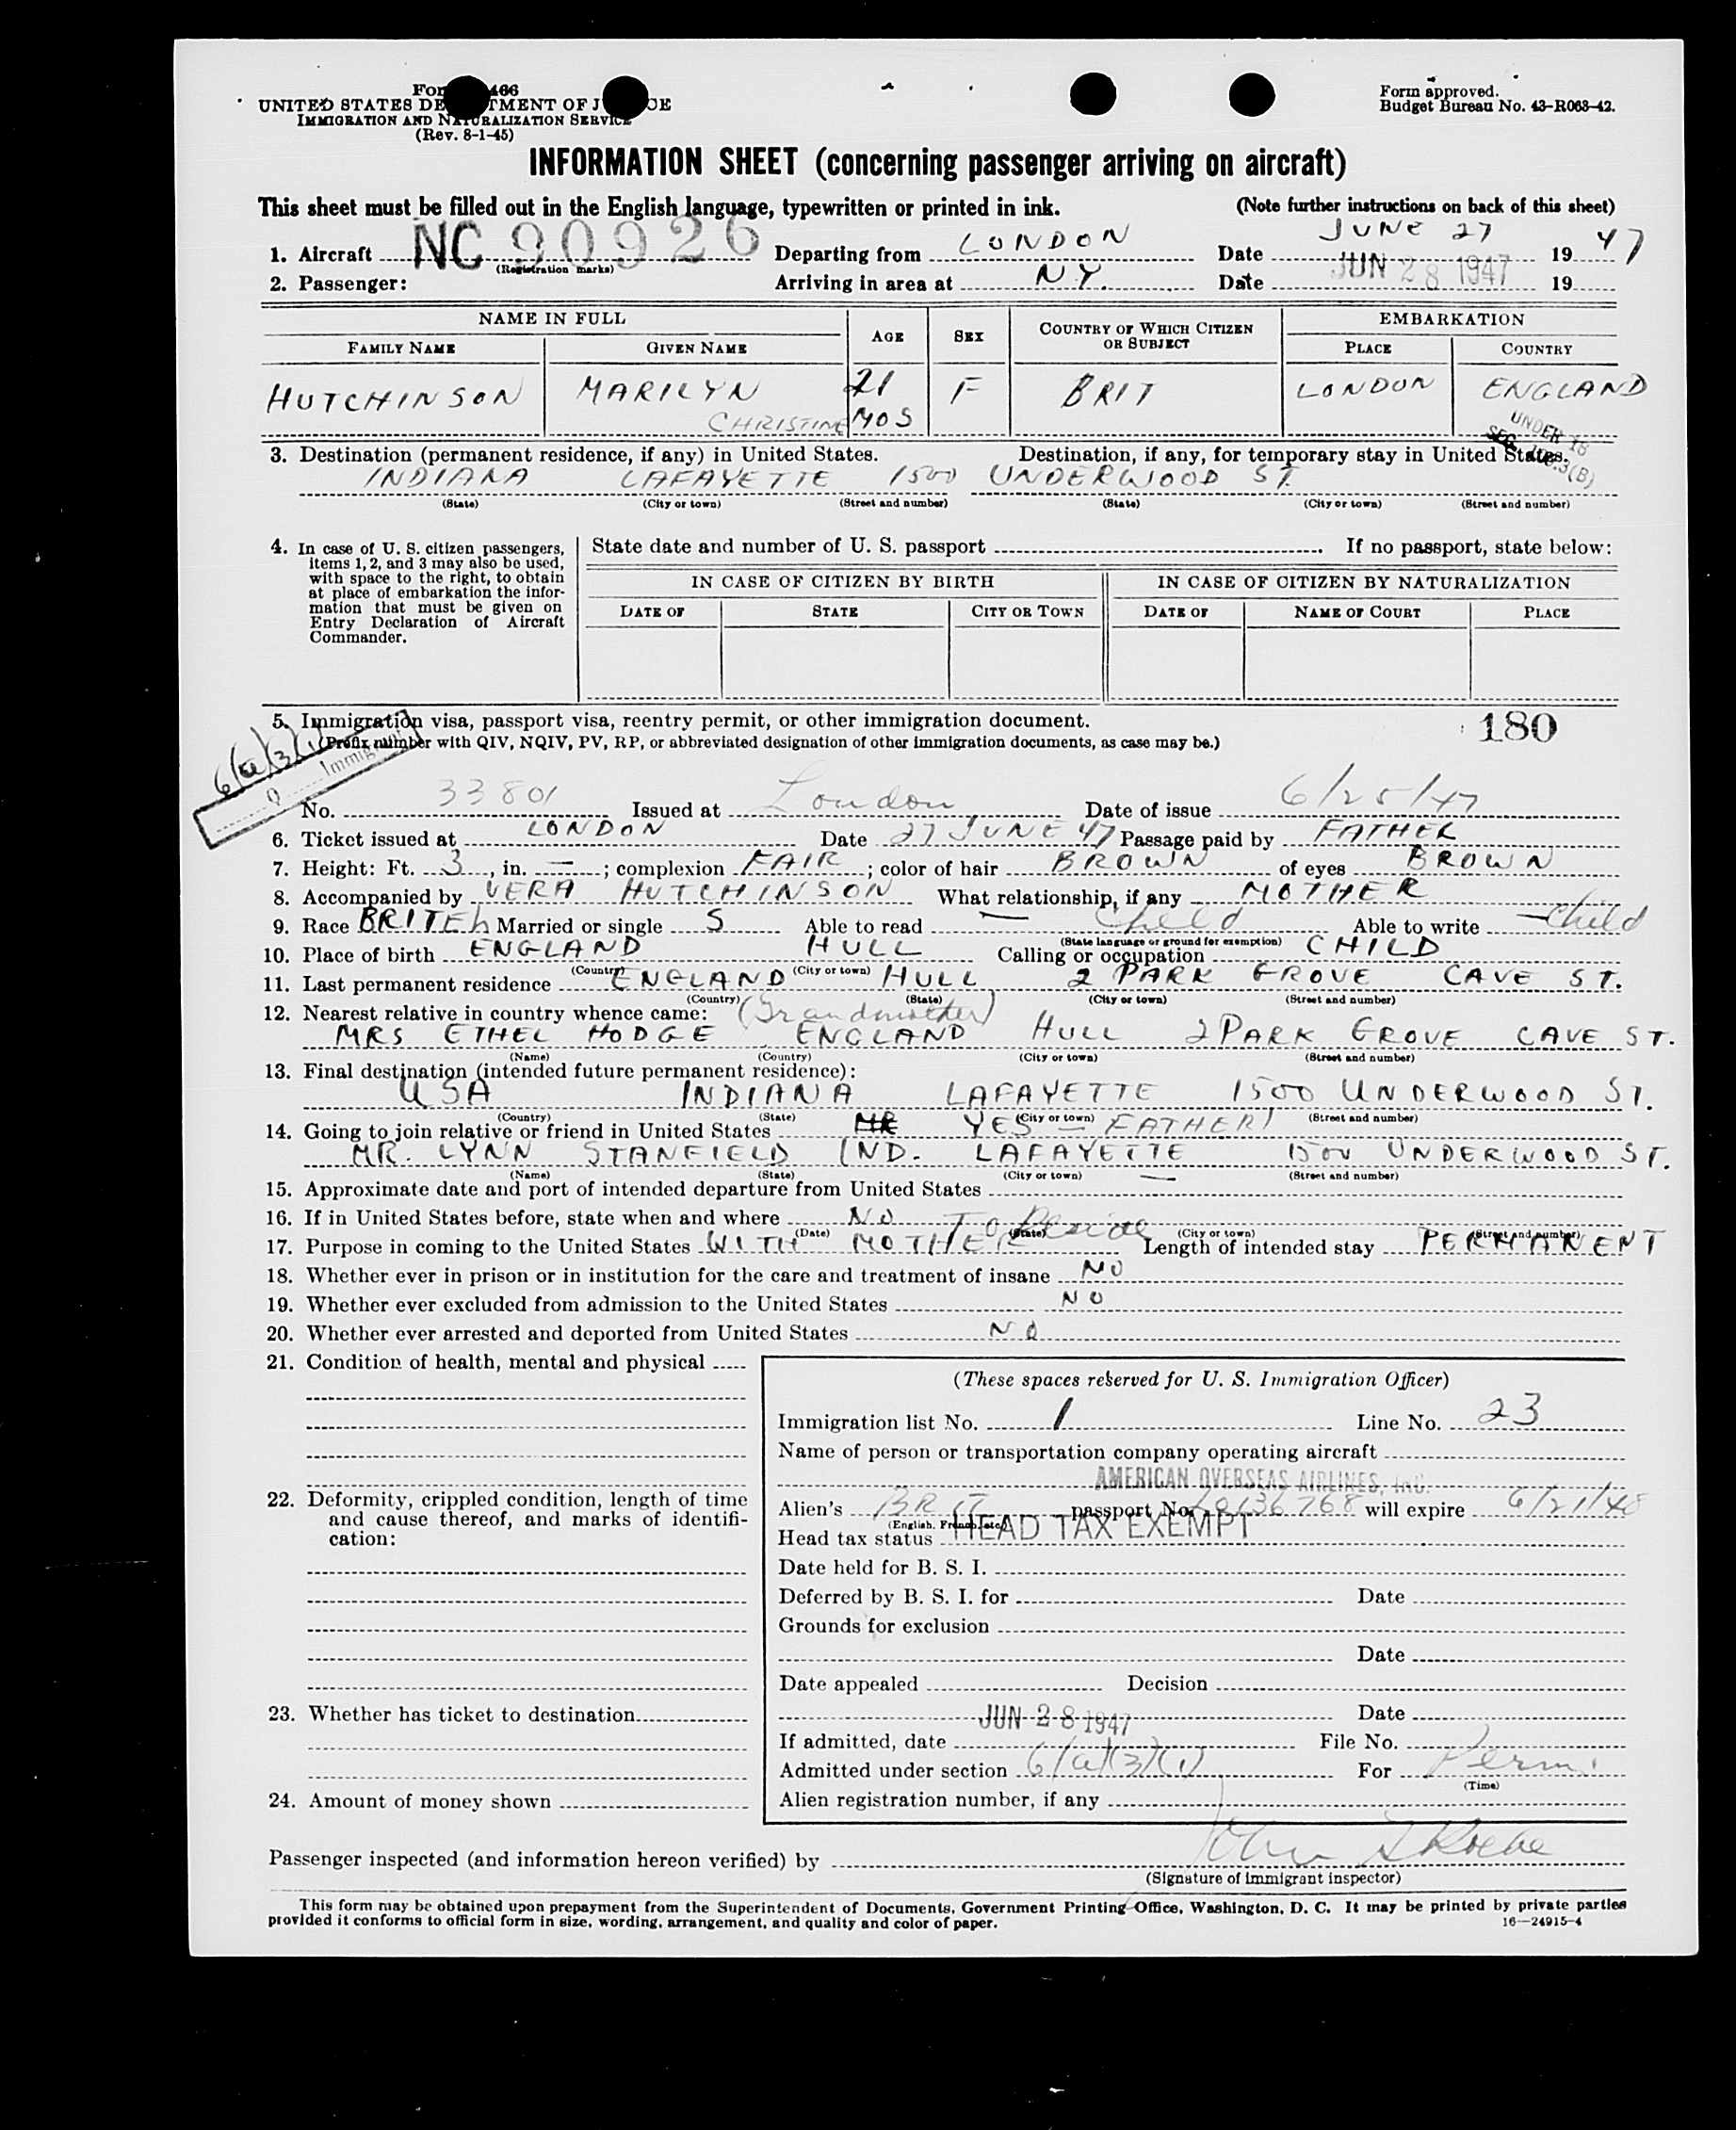 Form 466
UNITED STATES DEPARTMENT OF JUSTICE
IMMIGRATION AND NATURALIZATION SERVICE
(Rev. 8-1-45)
Form approved.
Budget Bureau No. 43-R063-42.
INFORMATION SHEET (concerning passenger arriving on aircraft)
This sheet must be filled out in the English language, typewritten or printed in ink. (Note further instructions on back of this sheet)
1. Aircraft NC 90926 Departing from LONDON Date JUNE 27 1947
(Registration marks)
2. Passenger: Arriving in area at N.Y. Date JUN 28 1947 19
NAME IN FULL AGE SEX COUNTRY OF WHICH CITIZEN OR SUBJECT EMBARKATION
FAMILY NAME GIVEN NAME PLACE COUNTRY
HUTCHINSON MARILYN 21 F BRIT LONDON ENGLAND
CHRISTINE MOS
UNDER 16
3. Destination (permanent residence, if any) in United States. Destination, if any, for temporary stay in United States.
INDIANA LAFAYETTE 1500 UNDERWOOD ST.
(State) (City or town) (Street and number) (State) (City or town) (Street and number)
4. In case of U. S. citizen passengers,
items 1, 2, and 3 may also be used,
with space to the right, to obtain
at place of embarkation the infor-
mation that must be given on
Entry Declaration of Aircraft
Commander.
State date and number of U. S. passport . If no passport, state below:
IN CASE OF CITIZEN BY BIRTH IN CASE OF CITIZEN BY NATURALIZATION
DATE OF STATE CITY OR TOWN DATE OF NAME OF COURT PLACE
5. Immigration visa, passport visa, reentry permit, or other immigration document. 180
(Prefix number with QIV, NQIV, PV, RP, or abbreviated designation of other immigration documents, as case may be.)
6(a)(3)(1)
Q Immigrant
No. 33801 Issued at London Date of issue 6/25/47
6. Ticket issued at LONDON Date 27 JUNE 47 Passage paid by FATHER
7. Height: Ft. 3, in. — ; complexion FAIR ; color of hair BROWN of eyes BROWN
8. Accompanied by VERA HUTCHINSON What relationship, if any MOTHER
9. Race BRITEh Married or single S Able to read — Child Able to write — Child
(State language or ground for exemption)
10. Place of birth ENGLAND HULL Calling or occupation CHILD
(Country) (City or town)
11. Last permanent residence ENGLAND HULL 2 PARK GROVE CAVE ST.
(Country) (State) (City or town) (Street and number)
12. Nearest relative in country whence came: (Grandmother)
MRS ETHEL HODGE ENGLAND HULL 2 PARK GROVE CAVE ST.
(Name) (Country) (City or town) (Street and number)
13. Final destination (intended future permanent residence):
USA INDIANA LAFAYETTE 1500 UNDERWOOD ST.
(Country) (State) (City or town) (Street and number)
14. Going to join relative or friend in United States MR YES — FATHER
MR. LYNN STANFIELD IND. LAFAYETTE 1500 UNDERWOOD ST.
(Name) (State) (City or town) (Street and number)
15. Approximate date and port of intended departure from United States —
16. If in United States before, state when and where NO
(Date) (State) (City or town) (Street and number)
17. Purpose in coming to the United States WITH MOTHER To Reside Length of intended stay PERMANENT
18. Whether ever in prison or in institution for the care and treatment of insane NO
19. Whether ever excluded from admission to the United States NO
20. Whether ever arrested and deported from United States NO
21. Condition of health, mental and physical
22. Deformity, crippled condition, length of time
and cause thereof, and marks of identifi-
cation:
23. Whether has ticket to destination
24. Amount of money shown
(These spaces reserved for U. S. Immigration Officer)
Immigration list No. 1 Line No. 23
Name of person or transportation company operating aircraft
AMERICAN OVERSEAS AIRLINES, INC.
Alien's BRIT passport No. will expire 6/21/48
(English, French, etc.)
Head tax status HEAD TAX EXEMPT
Date held for B. S. I.
Deferred by B. S. I. for Date
Grounds for exclusion
Date
Date appealed Decision
Date
If admitted, date JUN 28 1947 File No.
Admitted under section 6(a)(3)(1) For Perm.
(Time)
Alien registration number, if any
Passenger inspected (and information hereon verified) by John
(Signature of immigrant inspector)
This form may be obtained upon prepayment from the Superintendent of Documents, Government Printing Office, Washington, D. C. It may be printed by private parties
provided it conforms to official form in size, wording, arrangement, and quality and color of paper. 16—24915-4